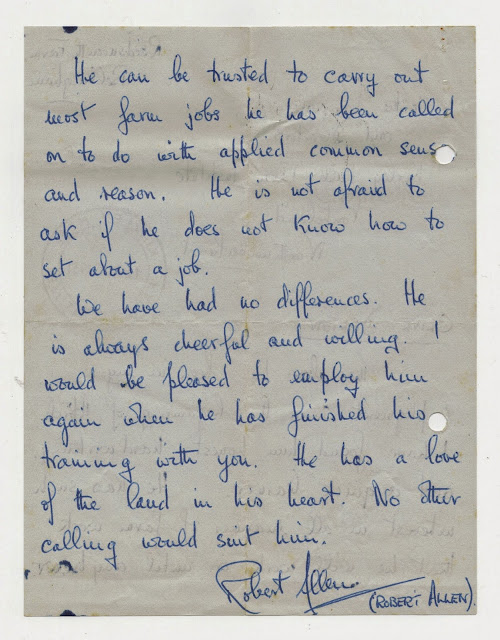 He can be trusted to carry out
most farm jobs he has been called
on to do with applied common sense
and reason. He is not afraid to
ask if he does not know how to
set about a job.
We have had no differences. He
is always cheerful and willing. I
would be pleased to employ him
again when he has finished his
training with you. He has a love
of the land in his heart. No other
calling would suit him.
Robert Allen
(ROBERT ALLEN).